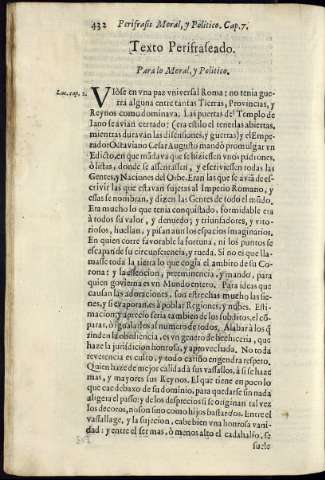 432 Perifrasis Moral, y Politico. Cap. 7.
Texto Perifraseado.
Para lo Moral, y Politico.
Luc. cap. 2.
Viòse en vna paz vniversal Roma; no tenia gue-
rra alguna entre tantas Tierras, Provincias, y
Reynos como dominava. Las puertas del Templo de
Iano se avian cerrado; (era estilo el tenerlas abiertas,
mientras duravan las disensiones, y guerras) y el Empe-
rador Octaviano Cesar Augusto mandò promulgar vn
Edicto, en que mãdava que se hiziessen vnos padrones,
ò listas, donde se assentassen, y escriviessen todas las
Gentes, y Naciones del Orbe. Eran las que se avia de es-
crivir las que estavan sujetas al Imperio Romano, y
essas se nombran, y dizen las Gentes de todo el mũdo.
Era mucho lo que tenia conquistado, formidable era
à todos su valor, y denuedo; y triunfadores, y vito-
riosos, huellan, y pisan aun los espacios imaginarios.
En quien corre favorable la fortuna, ni los puntos se
escapan de su circunferencia, y rueda. Si no es que lla-
masse toda la tierra lo que cogia el ambito de su Co-
rona: y la essencion, preeminencia, y mando, para
quien govierna es vn Mundo entero. Para ideas que
causan las adoraciones, son estrechas mucho las sie-
nes, y si evaporan es à poblar Regiones, y nubes. Esti-
macion, y aprecio seria tambien de los subditos, el cõ-
parar, ò igualar los al numero de todos. Alabar à los q̃
rinden la obediencia, es vn genero de hechizeria, que
haze la jurisdiccion honrosa, y aprovechada. No toda
reverencia es culto, y todo cariño engendra respeto.
Quien haze de mejor calidad à sus vassallos, à si se haze
mas, y mayores sus Reynos. El que tiene en poco lo
que cae debaxo de su dominio, para quedarse sin nada
aligera el passo: y de los desprecios si se originan tal vez
los decoros, no son sino como hijos bastardos. Entre el
vassallage, y la sujecion, cabe bien vna honrosa vani-
dad: y entre el ser mas, ò menos alto el cadahalso, se
suele